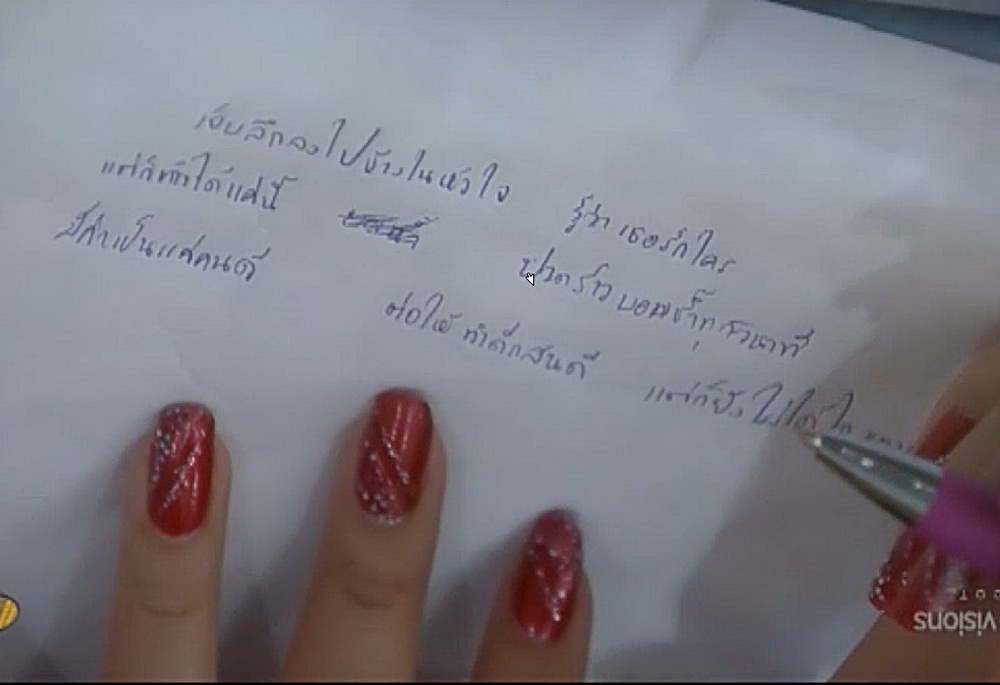 เจ็บลึกลงไปข้างในหัวใจ
รู้ว่าเธอรักใคร
แต่ก็ทำได้แค่นี้
ปวดร้าว ทุกวินาที
มีค่าเป็นแค่คนดี
ต่อให้ทำดีกแสนดี
แต่ก็ยังไม่ได้ใจ
visions